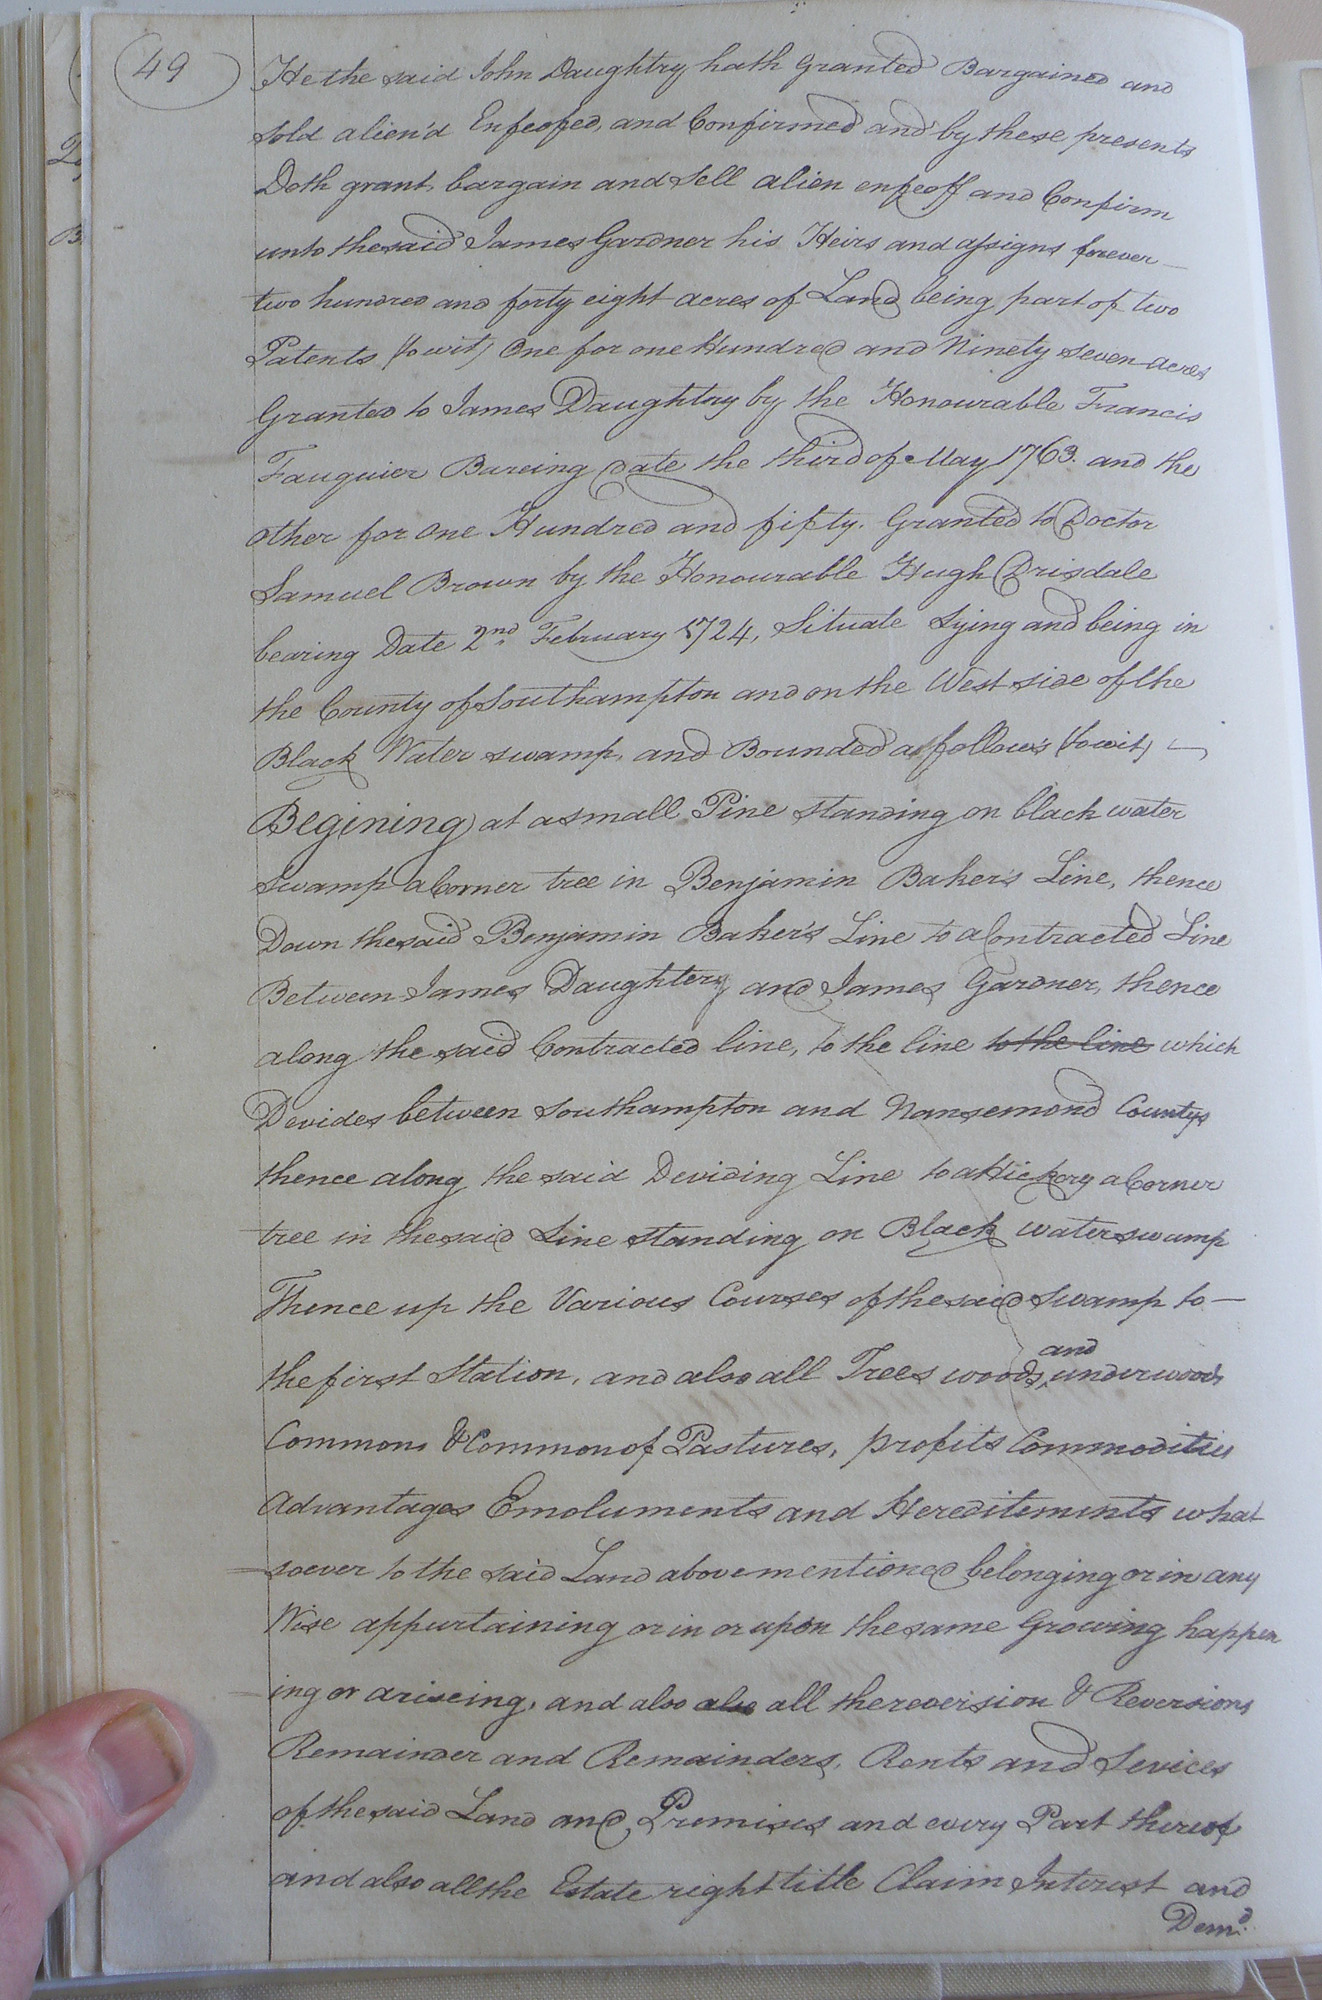 49
He the said John Daughtry hath Granted Bargained and
sold alien'd Enfeofed, and Confirmed and by these presents
Doth grant, bargain and Sell alien enfeoff and Confirm
unto the said James Gardner his Heirs and assigns forever
two hundred and forty eight acres of Land being part of two
Patents (to wit) One for one Hundred and Ninety seven acres
Granted to James Daughtry by the Honourable Francis
Fauquier Bareing Date the third of May 1763. and the
other for One Hundred and fifty. Granted to Doctor
Samuel Brown by the Honourable Hugh Drisdale
bearing Date 2nd February 1724, Situate Lying and being in
the County of Southampton and on the West side of the
Black Water swamp, and Bounded as follows (to wit)
Begining at a small Pine standing on black water
Swamp a Corner tree in Benjamin Baker's Line, thence
Down the said Benjamin Baker's Line to a Contracted Line
Between James Daughtery and James Gardner, thence
along the said Contracted line, to the line to the line which
Devides between Southampton and Nansemond Countys
thence along the said Deviding Line to a Hickory a Corner
tree in the said Line standing on Black water swamp
Thence up the Various Courses of the said Swamp to —
the first Station, and also all Trees woods, and underwoods
Commons & Common of Pastures, profits Commodities
Advantages Emoluments and Hereditements what
soever to the said Land above mentioned belonging or in any
Wise appurtaining or in or upon the same Growing happen
ing or ariseing, and also also all the reversion & Reversions
Remainder and Remainders, Rents and Sevices
of the said Land and Premises and every Part thereof
and also all the Estate right title Claim Interest and
Demd.